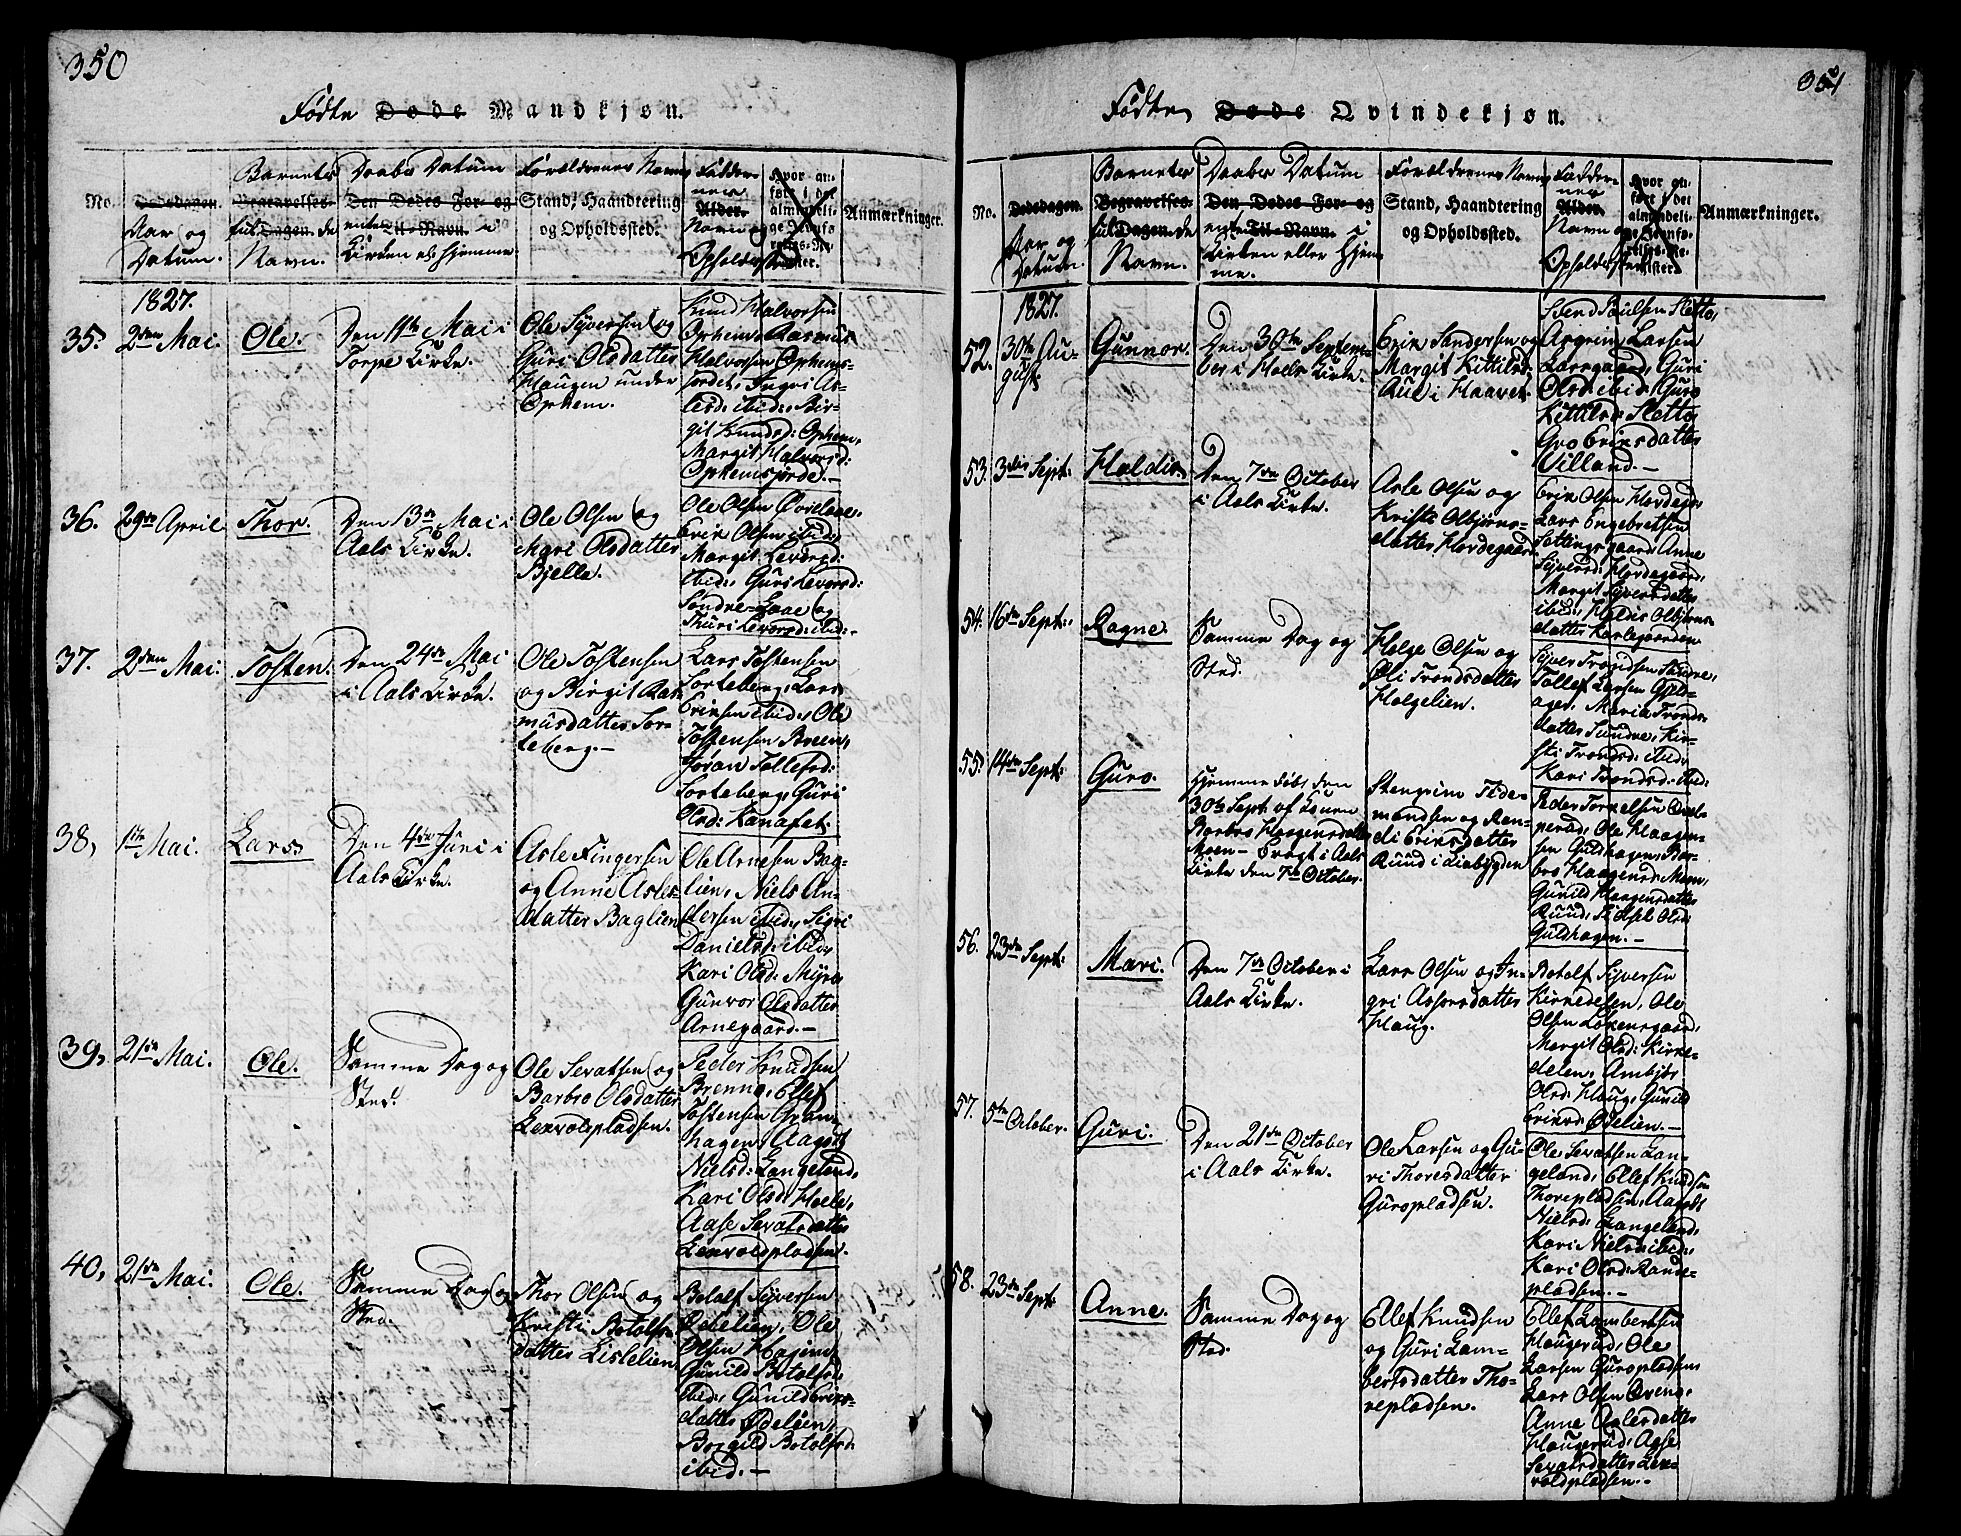 350
Fødte Døde Mandkjøn.
No.
Dødsdagen.
Aar og
Datum.
Barnets
Begravelses-
fulde Dagen.
Navn.
Daabs Datum
Den Dødes For- og
enten Til-Navn. i
Kirken el: hjemme
Forældrenes Navn
Stand, Haandtering
og Opholdssted.
Fadder-
nes
Alder.
Navn og
Opholdssted
Hvor an-
ført i det
almindeli-
ge Jevnfø-
relses-Re-
gister.
Anmærkninger.
1827.
35.
2den Mai.
Ole.
Den 11te Mai i
Torpe Kirke.
Ole Syversen og
Guri Olsdatter
Haugen under
Opheim.
Knud Halvorsen
Ophem, Rasmus
Halvorsen Ophems-
jordet, Ingri As-
lesd: ibid:, Bir-
git Knudsd: Ophem,
Margit Halvorsd:
Ophemsjordet.-
36.
29de April
Thor.
Den 13de Mai i
Aals Kirke.
Ole Olsen og
Agri Olsdatter
Bjella.
Ole Olsen
Erik Olsen ibid:,
Margit Levorsd:
ibid:, Guri Levorsd:
Søndre-Laae og
Thuri Levorsd: ibid:-
37.
2den Mai:
Tosten.
Den 24de Mai
i Aals Kirke.
Ole Tostensen
og Birgit Ras-
musdatter Sor-
teberg.-
Lars Tostensen
Sorteberg, Lars
Eriksen ibid:, Ole
Tostensen Breen,
Joran Tollefsd:
Sorteberg, Guri
Olsd: Kanafet.
38,
1ste Mai.
Lars.
Den 4de Juni i
Aals Kirke.
Asle Fingersen
og Anne Asles-
datter Baglien
Ole Arnesen Bag-
lien, Niels An-
dersen ibid:, Sigri
Danielsd: ibid:,
Kari Olsd: Myro
Gunvor Olsdatter
Arnegaard.-
39,
21de Mai.
Ole.
Samme Dag og
Sted.
Ole Sevatsen og
Barbro Olsdatter
Lexvolpladsen.
Peder Knudsen
Brenno, Ellef
Tostensen Gram-
hagen, Aagot
Nielsd: Langeland,
Kari Olsd: Hoele,
Aase Sevatsdatter
Lexvoldpladsen.
40,
21de Mai.
Ole.
Samme Dag og
Sted.
Thor Olsen og
Kristi Botolfs-
datter Lislelien.
Botolf Syversen
Ødelien, Ole
Olsen Hagen,
Gunild Botolfsd:
ibid:, Gunild Eriks-
datter Ødelien,
Borgild Botolfsd:
ibid.-
351
Fødte Døde Qvindekjøn.
No.
Dødsdagen.
Aar og
Datum.
Barnets
Begravelses-
fulde Dagen.
Navn.
Daabs Datum
Den Dødes For- og
enten Til-Navn. i
Kirken eller Hjem-
me.
Forældrenes Navn
Stand, Haandtering
og Opholdssted.
Fadder-
nes
Alder.
Navn og
Opholdssted
Hvor an-
ført i det
almindeli-
ge Jevnfø-
relses-Re-
gister.
Anmærkninger.
1827.
52.
30te Au-
gust
Gunnor.
Den 30te Septem-
ber i Hoels Kirke.
Erik Sandersen og
Margit Kittilsd:
Aue i Haavet.
Svend Paulsen Sletto,
Asgrim Larsen
Larsgaard, Guri
Olsd: ibid:, Guro
Kittilsd: Sletto,
Gro Eriksdatter
Villand.-
53.
3die Sept:
Holdis.
Den 7de October
i Aals Kirke.
Asle Olsen og
Kristi Olbjørns-
datter Hordegaard
Erik Olsen Hordegd:
Lars Engebretsen
Settingsgaard, Anne
Syversd: Hordegaard,
Margit Syversdatter
ibid:, Holdis Olbjørns-
datter Karlsgaarden.
54.
16de Sept:
Ragne.
Samme Dag og
Sted.
Helge Olsen og
Øli Trondsdatter
Holgelien.
Syver Trondsen Sundre,
Tollef Larsen Guld-
ager, Maria Tronds-
datter Sundre, Kir-
sti Trondsd: ibid:
Kari Trondsd: ibid:
55.
14de Sept:
Guro.
Hjemme døbt, den
30te Sept. af Konen
Barbro Haagensdatter
Moen- Bragt i Aals
Kirke den 7de October.
Stengrim Tide-
mandsen og Ran-
di Eriksdatter
Ruud i Liabygden
Peder Torkelsen Opd-
perud, Ole Haagen-
sen Guldhagen, Bar-
bro Haagensd: Moen,
Gunild Haagensdatter
Ruud, Olsd:
Guldhagen.-
56.
23de Sept:
Mari.
Den 7de October i
Aals Kirke.
Lars Olsen og In-
gri Assorsdatter
Haug.
Botolf Syversen
Kirkedelen, Ole
Olsen Løkensgaard,
Margit Olsd: Kirke-
delen, Ambjør
Olsd: Haug, Gunild
Eriksd: Ødelien.-
57.
5te October.
Guri.
Den 21de October
i Aals Kirke.
Ole Larsen og Gu-
ri Thoresdatter
Guropladsen.
Ole Sevatsen Lan-
geland, Ellef Knudsen
Thorepladsen, Aagot
Nielsd: Langeland,
Kari Nielsd: ibid:,
Kari Olsd: Rande-
pladsen.-
58.
23de Sept:
Anne.
Samme Dag og
Sted.
Ellef Knudsen
og Guri Lam-
bertsdatter Tho-
repladsen.
Ellef Lambertsen
Haugerud, Ole
Larsen Guropladsen
Lars Olsen Qveng,
Anne Aslesdatter
Haugerud, Aase
Sevatsdatter Lex-
voldpladsen.-